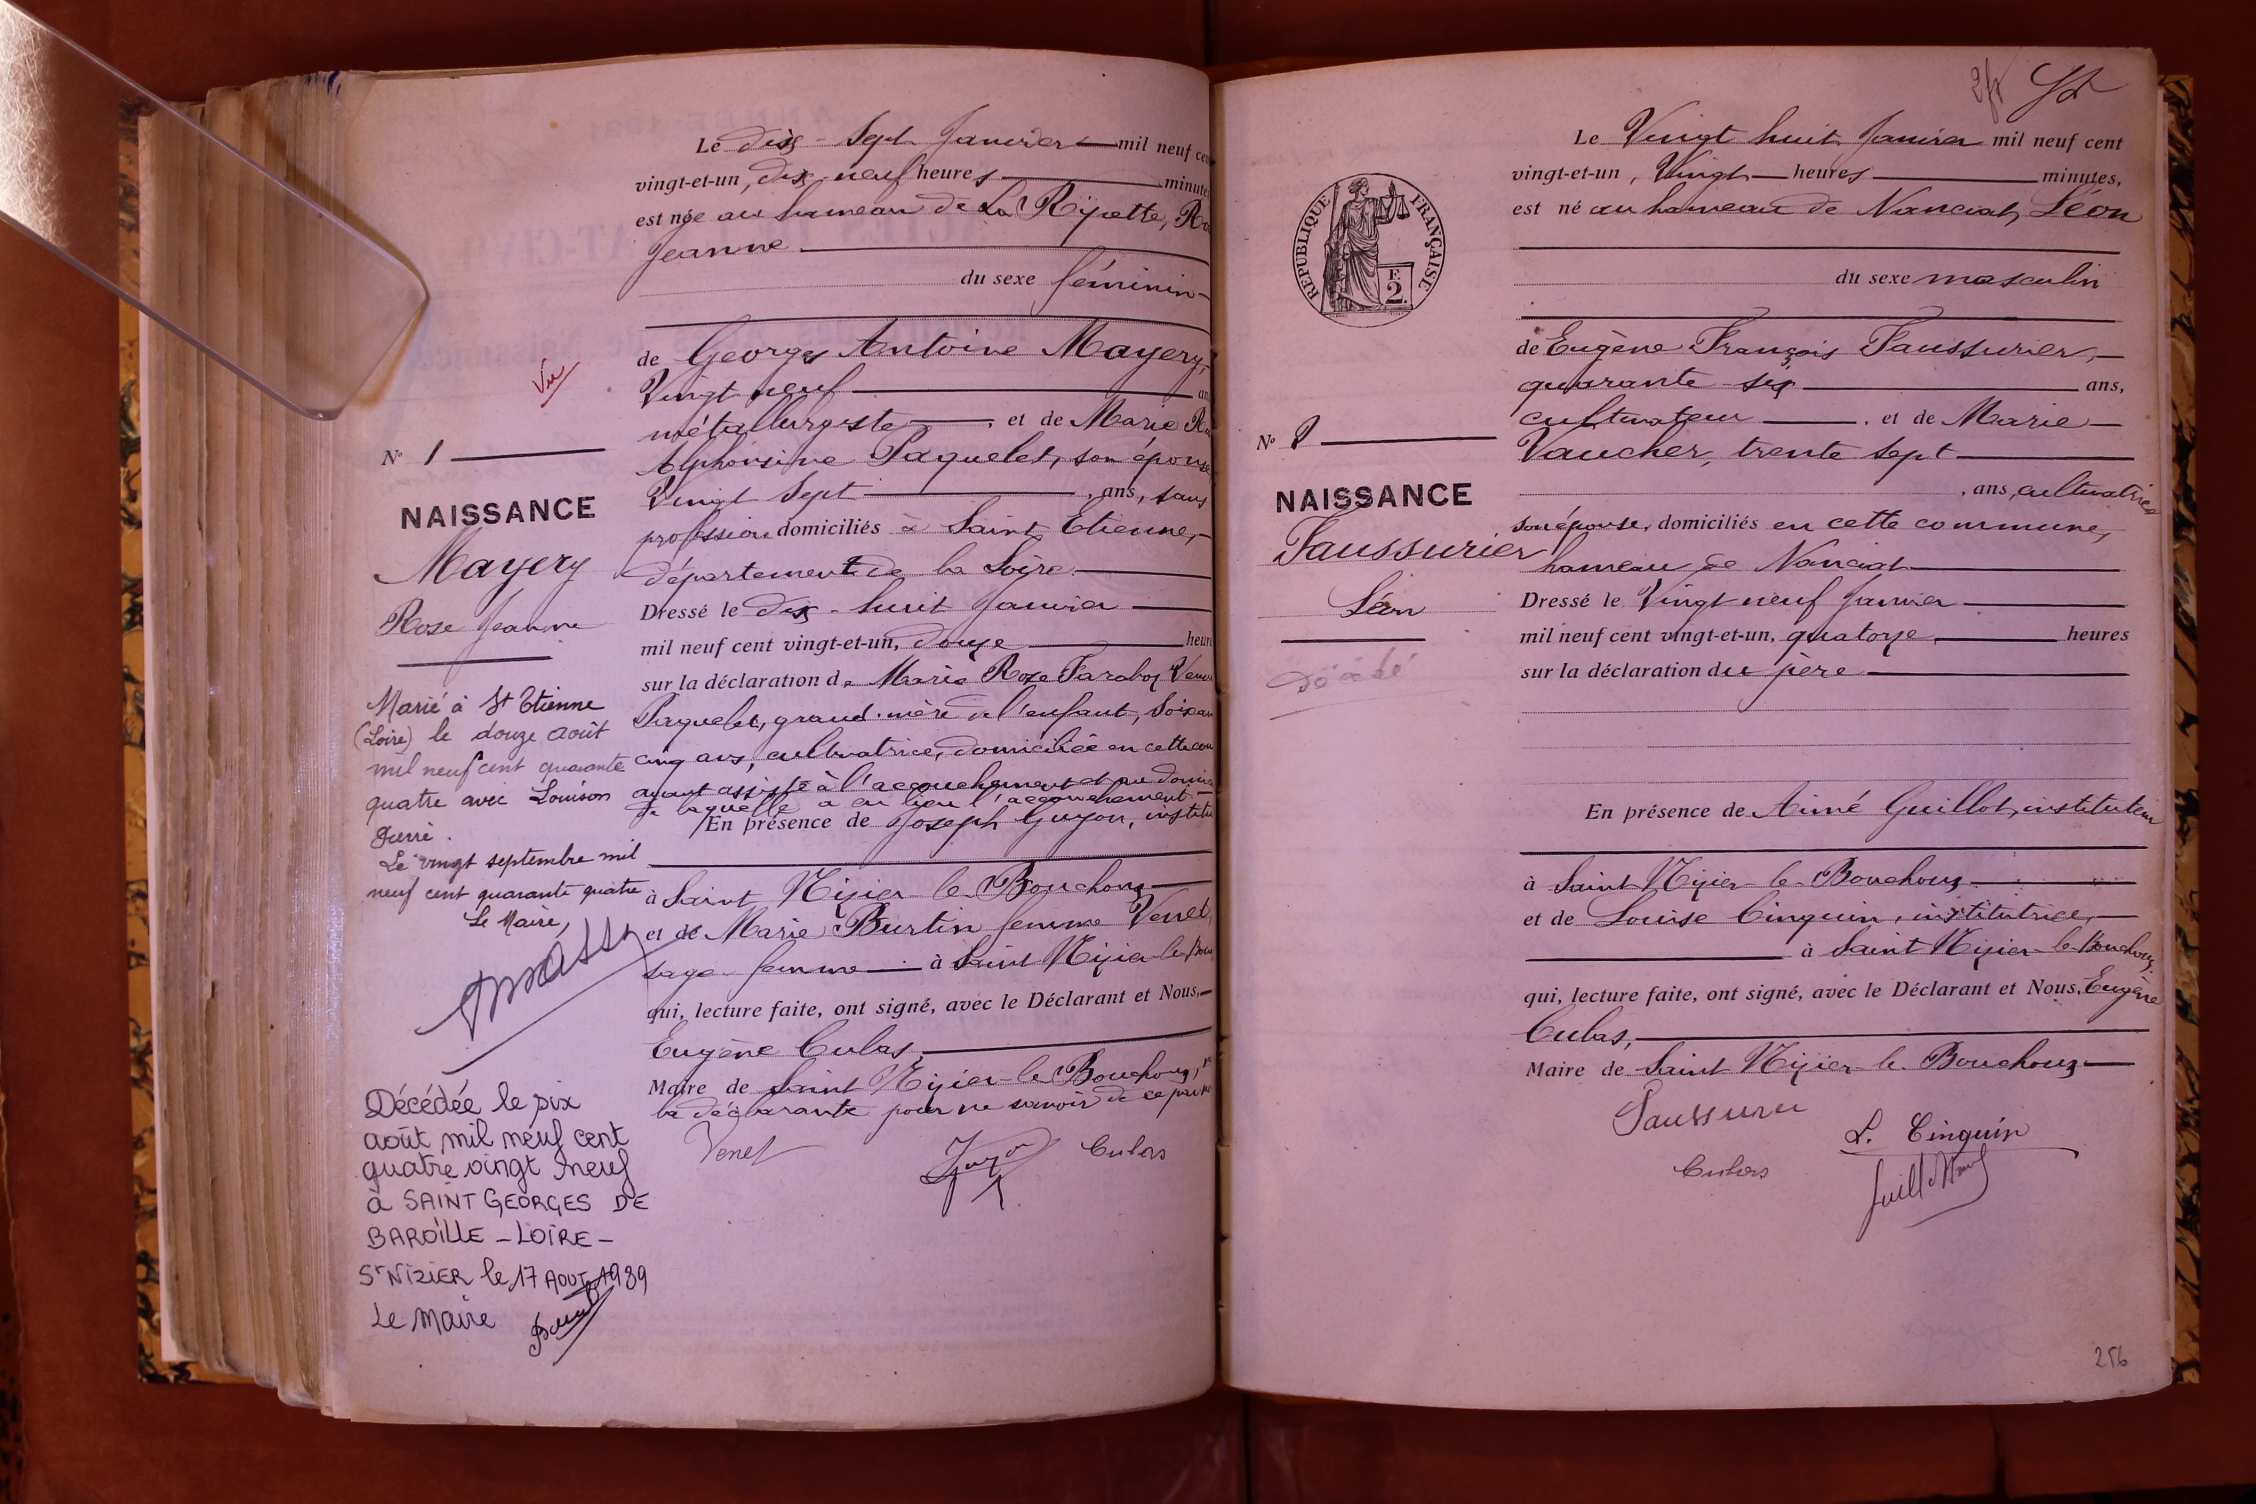 Le dix-sept Janvier mil neuf cent
vingt-et-un, dix-neuf heures minutes
est née au hameau de La Ripette, Ro
Jeanne
du sexe féminin
de Georges Antoine Mayery,
Vingt neuf an
métallurgiste et de Marie
Alphonsine Paquelet, son épouse
Vingt sept , ans, sans
profession domiciliés à Saint Etienne,
département de la Loire
Dressé le dix-huit Janvier
mil neuf cent vingt-et-un, douze heur
sur la déclaration de Marie Rose Veuve
Paquelet, grand-mère de l'enfant, soixan
cinq ans, cultivatrice, domiciliée en cette com
ayant assisté à l'accouchement et au domi
de laquelle a eu lieu l'accouchement
En présence de Joseph Guyon, institu
à Saint Nizier le Bouchoux
et de Marie Burtin femme Venet,
sage-femme à Saint Nizier le Bou
qui, lecture faite, ont signé, avec le Déclarant et Nous,
Eugène Culas,
Maire de Saint Nizier le Bouchoux,
la déclarante pour ne savoir de ce
Venet
Guyon
Culas
Vu
N° 1
NAISSANCE
Mayery
Rose Jeanne
Marié à St Etienne
(Loire) le douze Août
mil neuf cent quarante
quatre avec Louison
Pierre.
Le vingt septembre mil
neuf cent quarante quatre
Le Maire,
Décédée le six
août mil neuf cent
quatre vingt neuf
à SAINT GEORGES DE
BAROILLE - LOIRE -
St NIZIER le 17 AOUT 1989
Le Maire
2fr
Le Vingt huit Janvier mil neuf cent
vingt-et-un, Vingt heures minutes,
est né au hameau de Nanciat, Léon
du sexe masculin
de Eugène François Faussurier,
quarante six ans,
cultivateur , et de Marie
Vaucher, trente sept
, ans, cultivatrice
son épouse, domiciliés en cette commune,
hameau de Nanciat
Dressé le Vingt neuf Janvier
mil neuf cent vingt-et-un, quatorze heures
sur la déclaration du père
En présence de Aimé Guillot, instituteur
à Saint Nizier le Bouchoux
et de Louise Cinquin, institutrice,
à Saint Nizier le Bouchoux.
qui, lecture faite, ont signé, avec le Déclarant et Nous, Eugène
Culas,
Maire de Saint Nizier le Bouchoux
Faussurier
L. Cinquin
Culas
REPUBLIQUE FRANÇAISE
F.
2.
N° 2
NAISSANCE
Faussurier
Léon
décédé
256